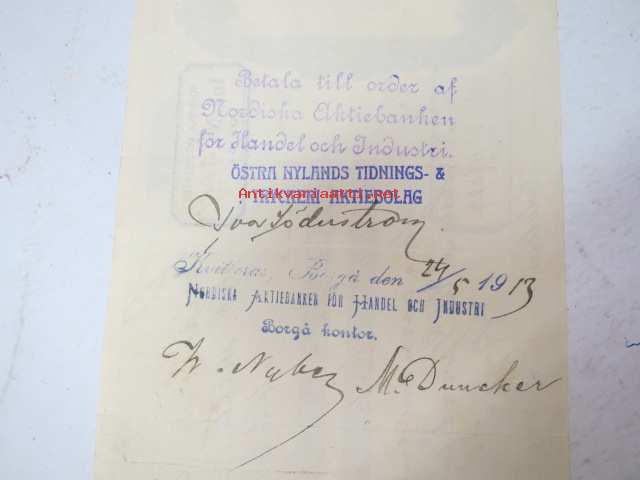 Betala till order af
Nordiska Aktiebanken
för Handel och Industri.
ÖSTRA NYLANDS TIDNINGS- &
TRYCKERI-AKTIEBOLAG
Antikvariaatti.com
Söderström
Kvitteras, Borgå den 24/5 1913
NORDISKA AKTIEBANKEN FÖR HANDEL OCH INDUSTRI
Borgå kontor.
W. Nyberg M. Duncker